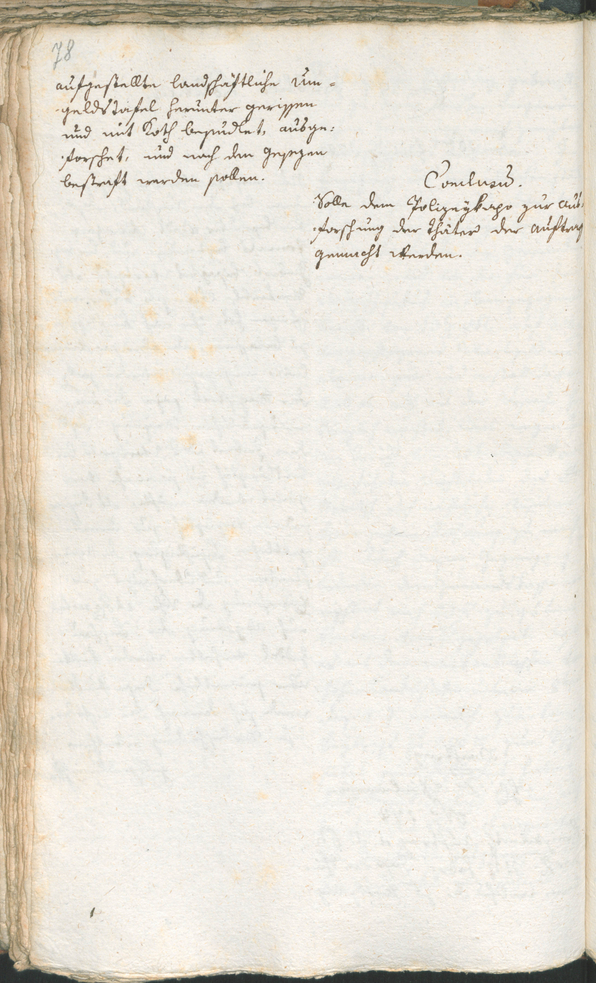 78
aufgestellte landschäftliche Um¬
geldstafel herunter gerissen
und mit Koth besudlet, ausge¬
forschet, und nach den Gesezen
bestraft werden sollen.
Conclusum.
Solle dem Polizeykapo zur Aus¬
forschung der Thäter der Auftrag
gemacht werden.